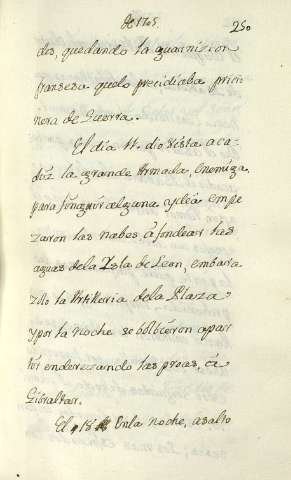 de 1705
250
dos, quedando la guarnision
fransesa que lo precidiaba pricio
nera de Guerra.
El dia 11. dio vista a ca
diz la grande Armada, Enemiga,
para
empe
zaron las nabes, á fondear las
aguas de la Ysla de Leon, embara
zolo la Artilleria de la Plaza
y por la noche se bolbieron a par
tir enderezando las proas, á
Gibraltar.
El 18 En la noche, asalto